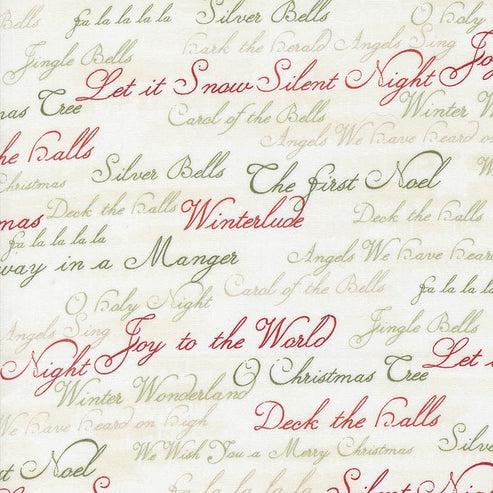 fa la la la la Silver Bells O Holy
Jingle Bells hark the herald Angels Sing
Let it Snow Silent Night Joy
mas Tree Carol of the Bells Winter W
Angels We have heard on
he halls
Christmas Silver Bells The first Noel W
mas Deck the halls Winterlude Deck the halls
fa la la la la
way in a Manger Angels We have heard
Carol of the Bells fa la la la
O holy Night
Angels Sing Joy to the World Jingle Bells
Night O Christmas Tree Let i
Winter Wonderland
We have heard on high Deck the halls
We Wish You a Merry Christmas Silver
st Noel
fa la la la la Silent Night